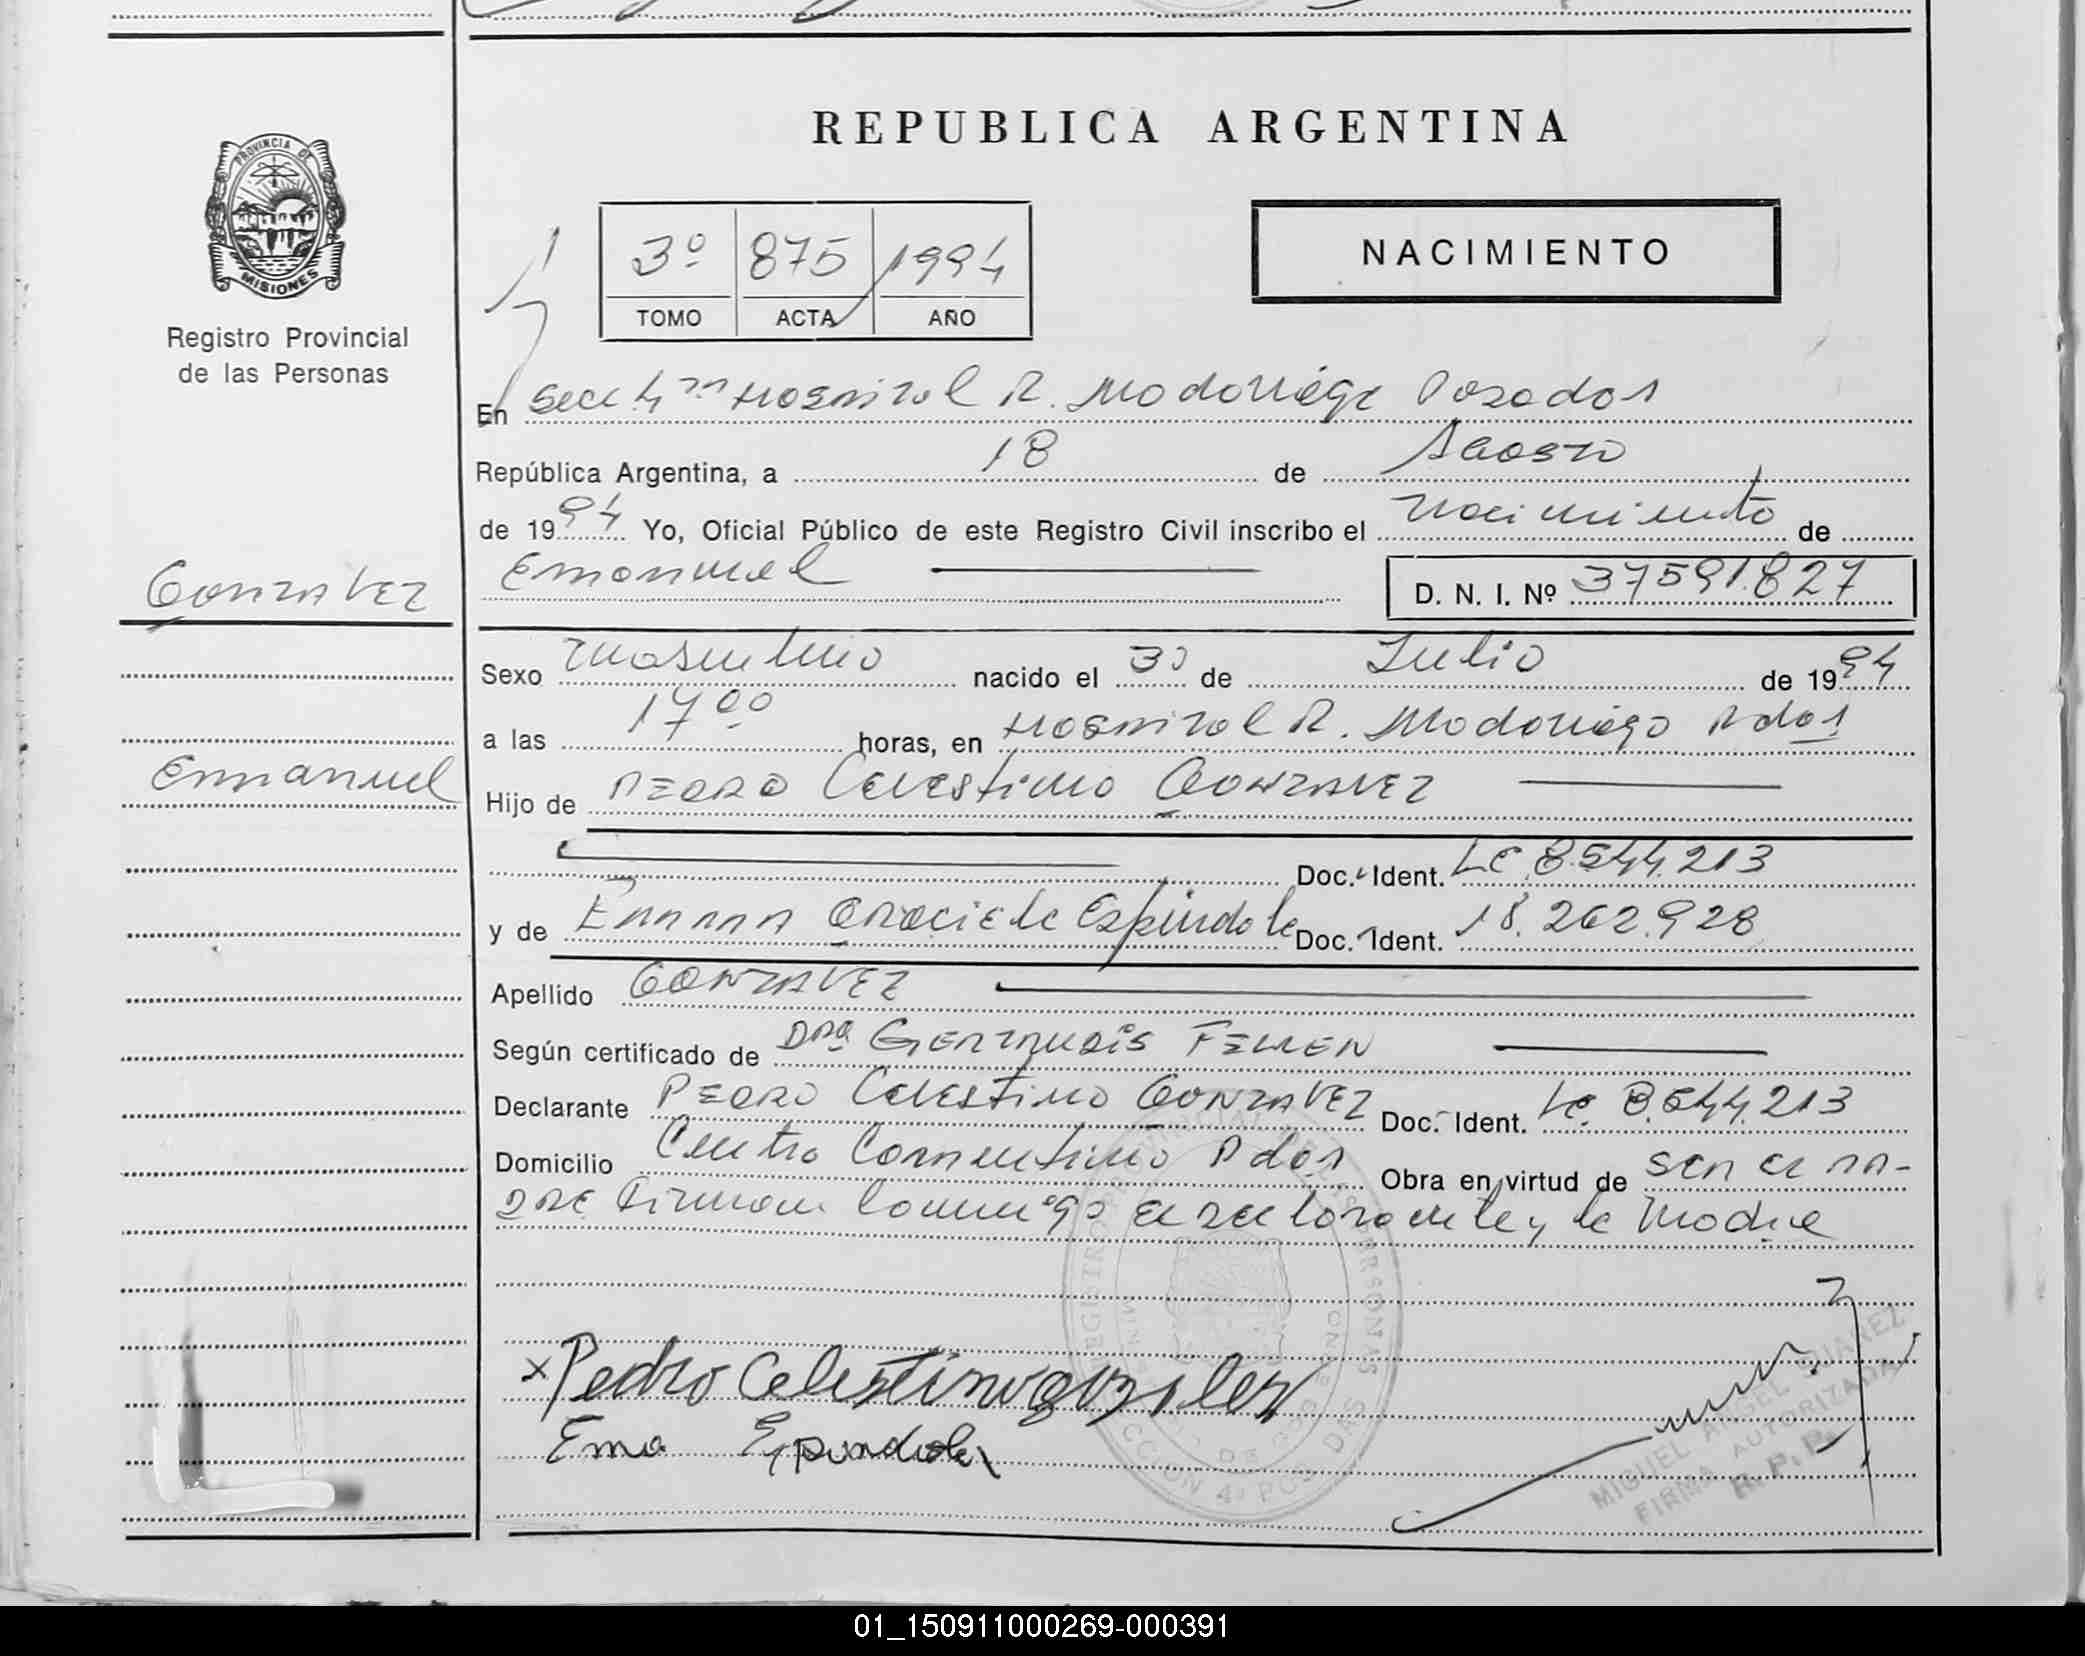 REPUBLICA ARGENTINA
PROVINCIA DE
MISIONES
Registro Provincial
de las Personas
3º 875 1994
TOMO ACTA AÑO
NACIMIENTO
En Secc 4ta Hospital R. Madariaga Posadas
República Argentina, a 18 de Agosto
de 1994 Yo, Oficial Público de este Registro Civil inscribo el Nacimiento de
Emanuel D. N. I. Nº 37591.827
Gonzalez
Emanuel
Sexo Masculino nacido el 30 de Julio de 1994
a las 17 00 horas, en Hospital R. Madariaga Pdas
Hijo de PEDRO Celestino GONZALEZ
Doc. Ident. LE 8.544.213
y de Graciela Espindola Doc. Ident. 18.262.928
Apellido GONZALEZ
Según certificado de Dra GERTRUDIS
Declarante PEDRO Celestino GONZALEZ Doc. Ident. LE 8.544.213
Domicilio Centro Pdas Obra en virtud de ser el PA-
DRE Firman Conmigo el declarante y la Madre
Pedro Celestino gonzalez
Ema Espindola
REGISTRO PROVINCIAL DE LAS PERSONAS
SECCION 4ª POSADAS
MIGUEL ANGEL SUAREZ
FIRMA AUTORIZADA
R.P.P.
01_150911000269-000391